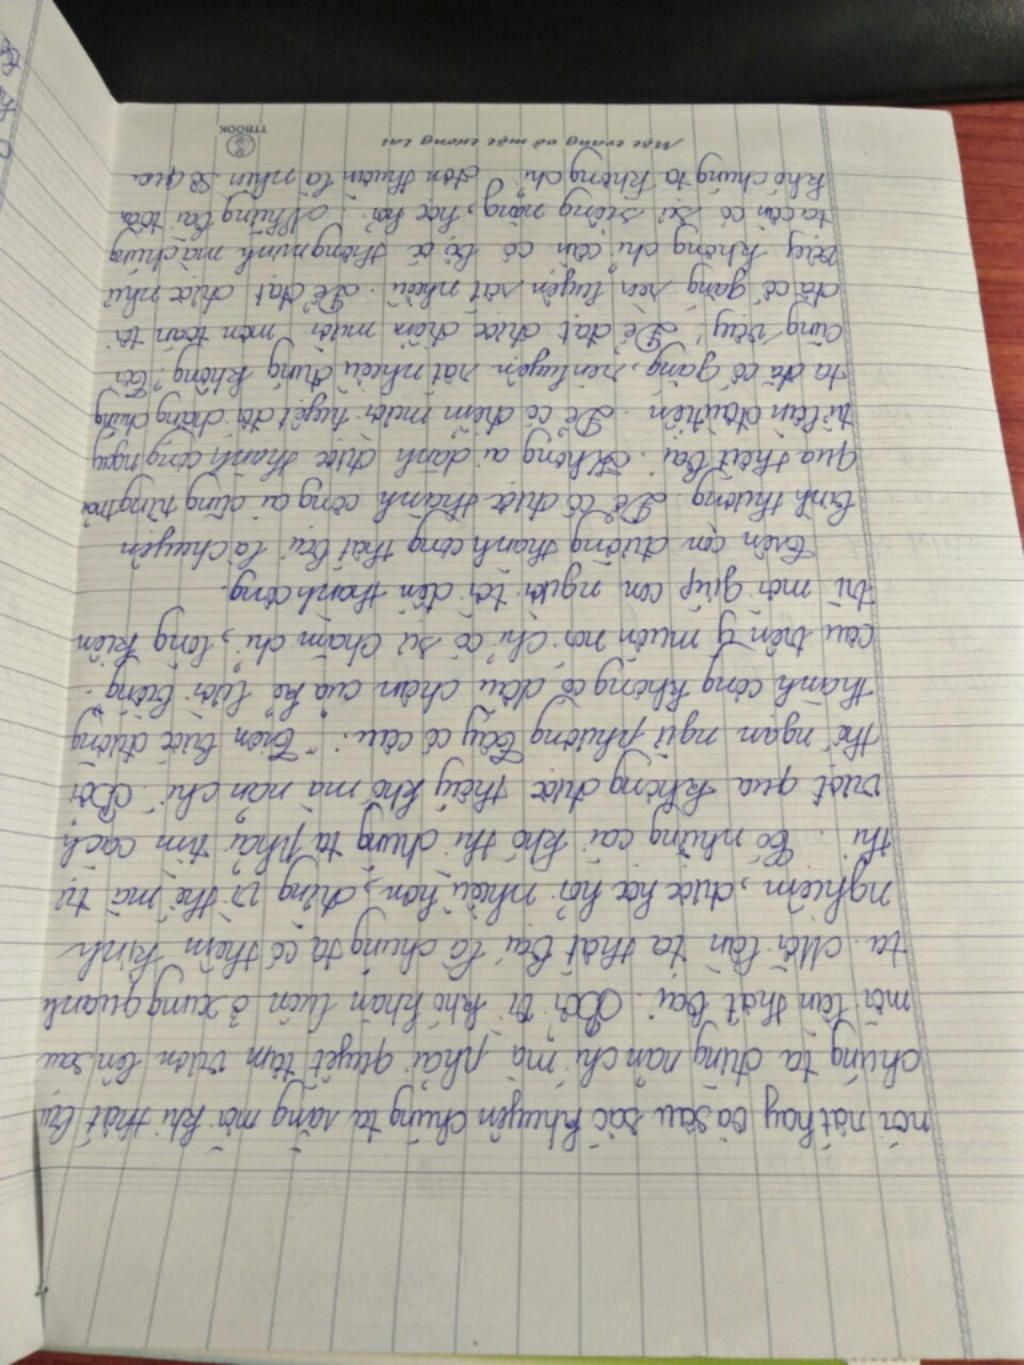 nói rất hay và sâu sắc khuyên chúng ta rằng mỗi khi thất bại
chúng ta đừng nản chí mà phải quyết tâm vươn lên sau
mỗi lần thất bại. Bởi vì khó khăn luôn ở xung quanh
ta. Mỗi lần ta thất bại là chúng ta có thêm kinh
nghiệm, được học hỏi nhiều hơn, đừng vì thế mà tự
ti. Có những cái khó thì chúng ta phải tìm cách
vượt qua không được thấy khó mà nản chí. Bởi
thế ngạn ngữ phương Tây có câu: "Trên bước đường
thành công không có dấu chân của kẻ lười biếng".
câu trên ý muốn nói chỉ có sự chăm chỉ, lòng kiên
trì mới giúp con người tới đến thành công.
Trên con đường thành công thất bại là chuyện
bình thường. Để có được thành công ai cũng từng trải
qua thất bại. Không ai dành được thành công ngay
từ lần đầu tiên. Để có điểm mười tuyệt đối chẳng chúng
ta đã cố gắng, rèn luyện rất nhiều đúng không. Tôi
cũng vậy, Để đạt được điểm mười môn toán tôi
đã cố gắng rèn luyện rất nhiều. Để đạt được như
vậy không chỉ cần có bộ óc thông minh mà chúng
ta cần có sự siêng năng, học hỏi. Những bài toán
khó chúng ta không chỉ đơn thuần là nhìn sơ qua
Một trang vở một tương lai
TTBOOK